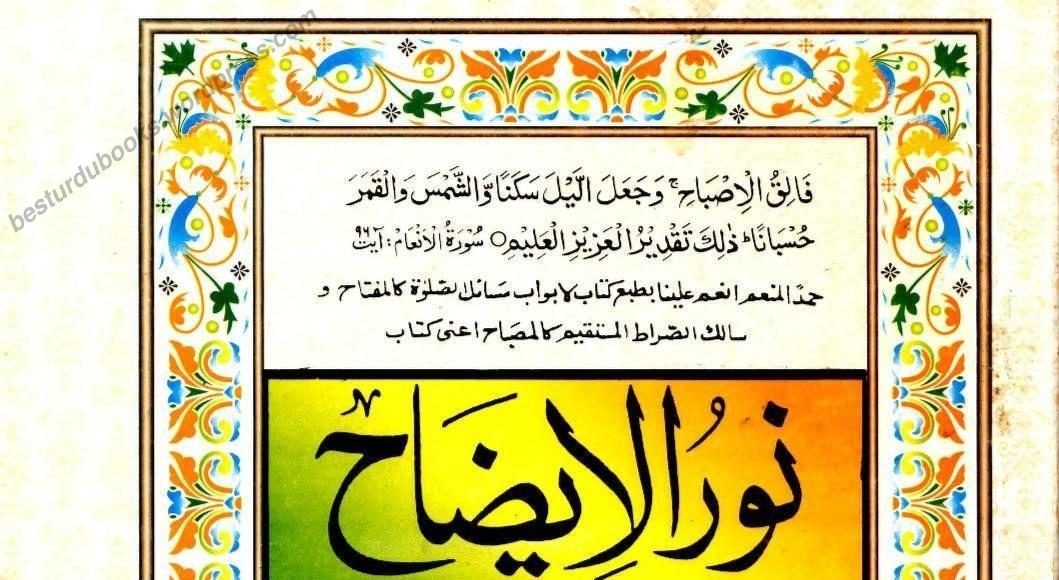 besturdubooks.wordpress.com
فَالِقُ الْاِصْبَاحِ ۚ وَجَعَلَ الَّيْلَ سَكَنًا وَّالشَّمْسَ وَالْقَمَرَ
حُسْبَانًا ؕ ذٰلِكَ تَقْدِيْرُ الْعَزِيْزِ الْعَلِيْمِ ○ سُوْرَةُ الْاَنْعَامْ: آیت ۹۶
حمدًا لمنعم انعم علينا بطبع كتاب لابواب مسائل الصلوٰة كالمفتاح و
سالك الصراط المستقيم كالمصباح اعنى كتاب
نورُ الإيضاح